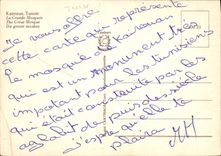 TUNIS
Kairouan, Tunisie
La Grande Mosquée
The Great Mosque
Die grosse moschee
je vous offre
cette carte qui représente
la mosquée de Kairouan
est un monument très
important pour les tunisiens
qui était construite par les
aglabit de puis des siècle
j'espr qu'elle te
plaira
MH